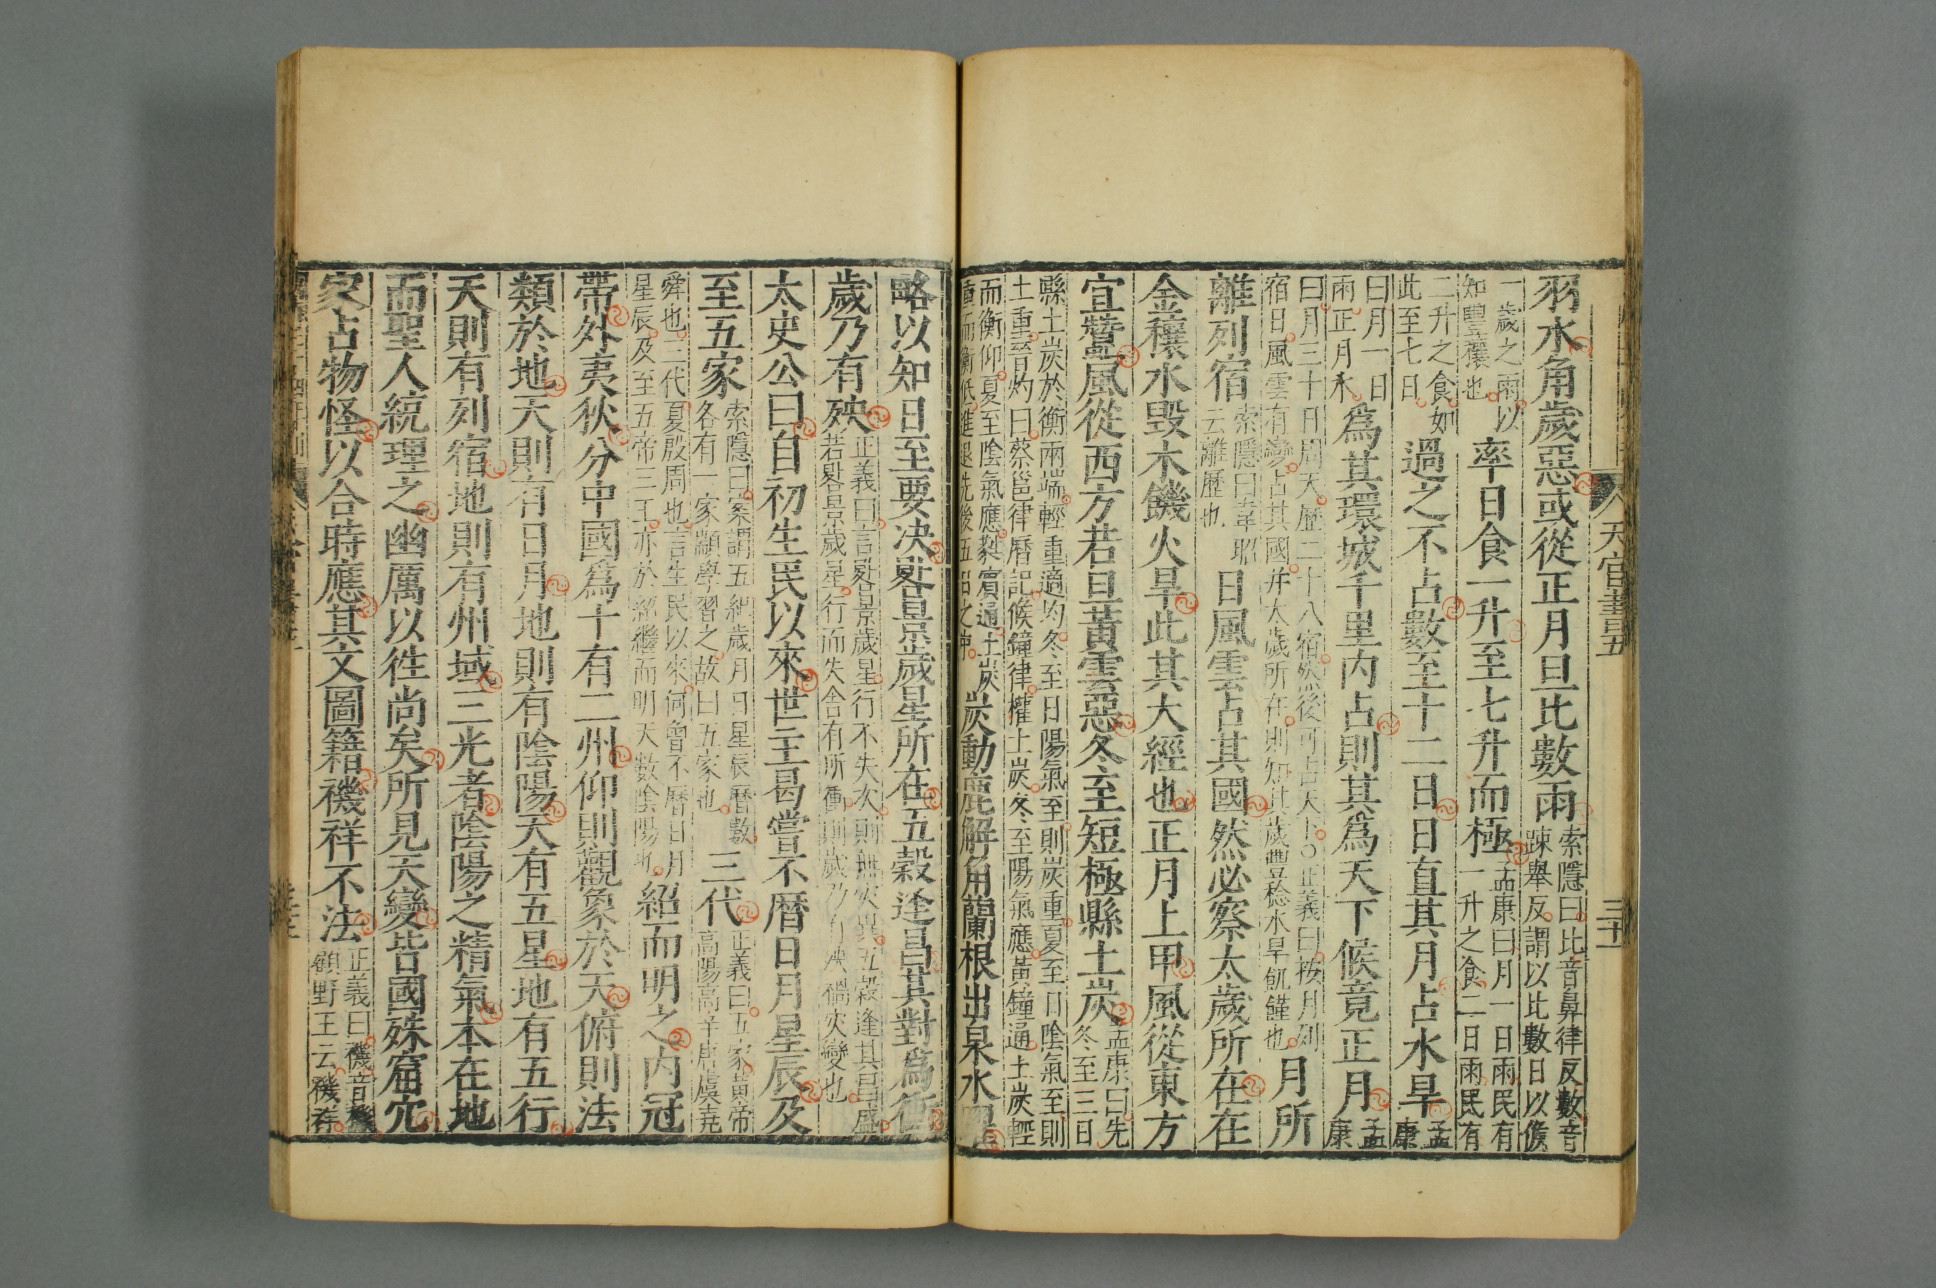 天官書五 三十一
羽水角歲惡或從正月旦比數雨索隱曰比音鼻律反數音踈舉反謂以比數日以候
一歲之雨以知豐穰也率日食一升至七升而極孟康曰月一日雨民有一升之食二日雨民有
二升之食如此至七日過之不占數至十二日日直其月占水旱孟康
曰月一日雨正月水爲其環城千里內占則其爲天下候竟正月孟康
曰月三十日周天歷二十八宿然後可占天下○正義曰按月列宿日風雲有變占其國并太歲所在則知其歲豐稔水旱飢饉也月所
離列宿索隱曰韋昭云離歷也日風雲占其國然必察太歲所在在
金穰水毀木饑火旱此其大經也正月上甲風從東方
宜蠶風從西方若旦黃雲惡冬至短極縣土炭孟康曰先冬至三日
縣土炭於衡兩端輕重適均冬至日陽氣至則炭重夏至日陰氣至則土重晉灼曰蔡邕律曆記候鐘律權土炭冬至陽氣應黃鐘通土炭輕
而衡仰夏至陰氣應蕤賓通土炭重而衡低進退先後五日之中炭動鹿解角蘭根出泉水躍
略以知日至要决晷景歲星所在五穀逢昌其對爲衝
歲乃有殃正義曰言晷景歲星行不失次則無災異五穀逢其昌盛若晷景歲星行而失舍有所衝則歲乃有殃禍災變也
太史公曰自初生民以來世主曷嘗不曆日月星辰及
至五家索隱曰案謂五紀歲月日星辰曆數各有一家顓學習之故曰五家也三代正義曰五家黃帝高陽高辛唐虞堯
舜也三代夏殷周也言生民以來何曾不曆日月星辰及至五帝三王亦於紹繼而明天數陰陽也紹而明之內冠
帶外夷狄分中國爲十有二州仰則觀象於天俯則法
類於地天則有日月地則有陰陽天有五星地有五行
天則有列宿地則有州域三光者陰陽之精氣本在地
而聖人統理之幽厲以徃尚矣所見天變皆國殊窟穴
家占物怪以合時應其文圖籍禨祥不法正義曰禨音機顧野王云禨祥